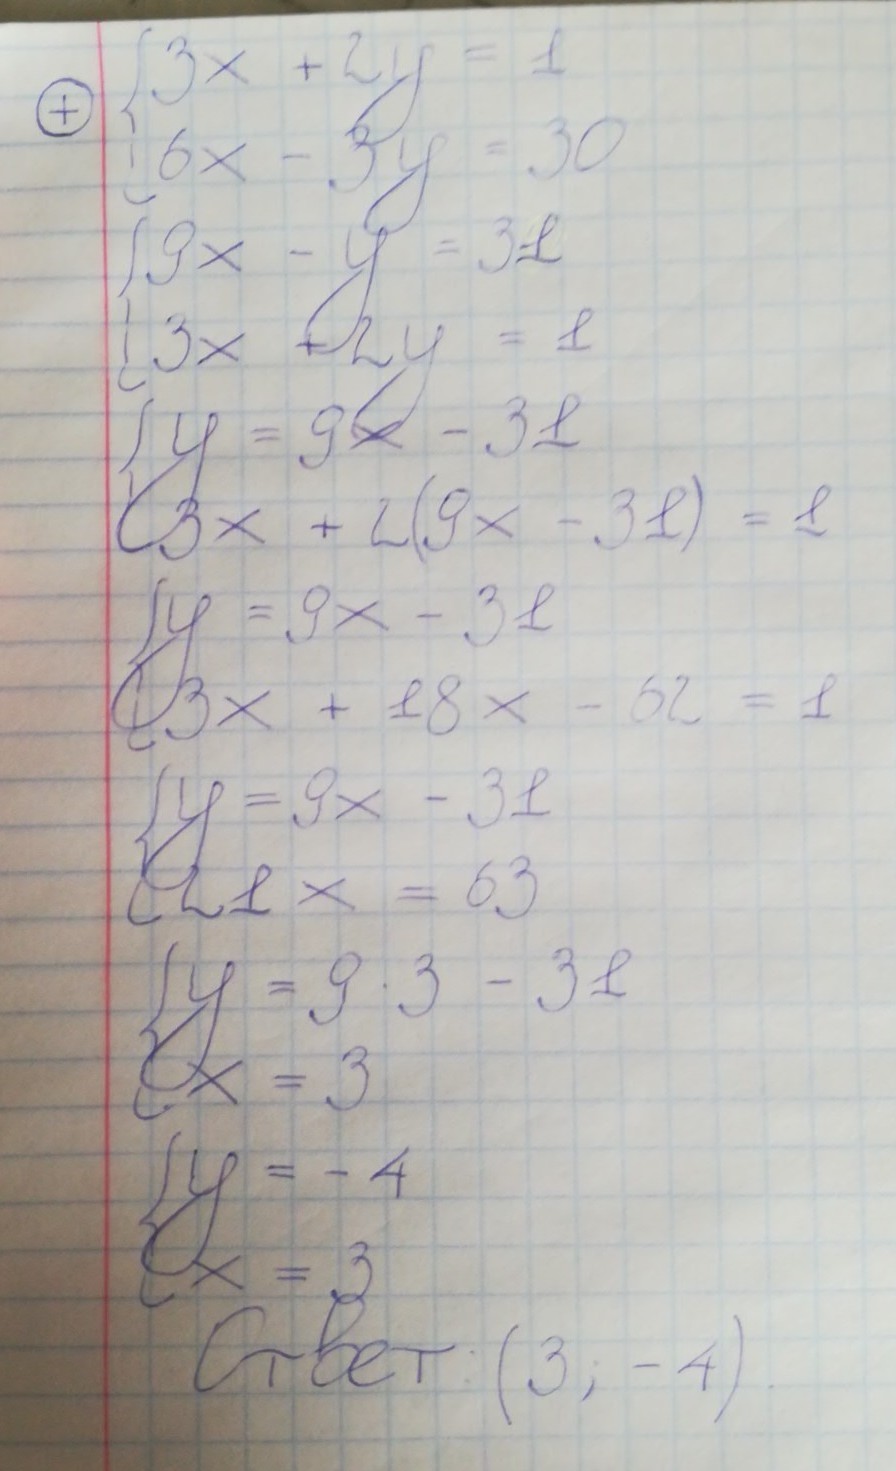 3x + 2y = 1
⊕
6x - 3y = 30
9x - y = 31
3x + 2y = 1
y = 9x - 31
3x + 2(9x - 31) = 1
y = 9x - 31
3x + 18x - 62 = 1
y = 9x - 31
21x = 63
y = 9 · 3 - 31
x = 3
y = -4
x = 3
Ответ: (3; -4).